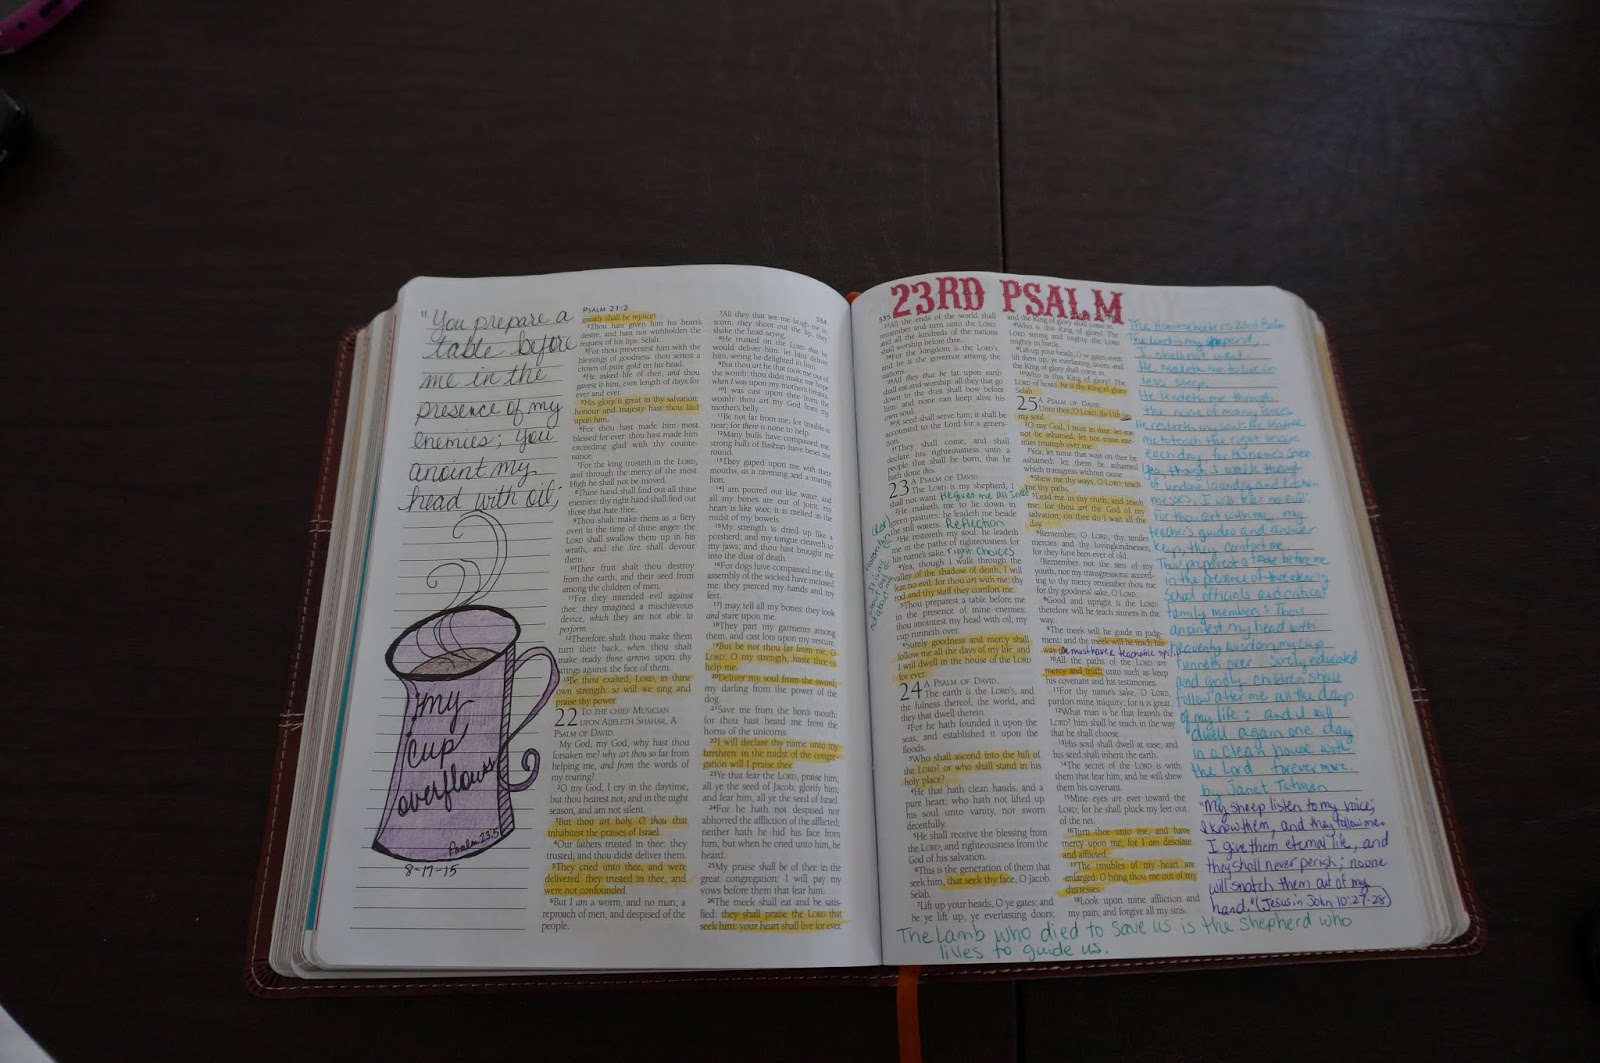 "You prepare a
table before
me in the
presence of my
enemies; you
anoint my
head with oil;
my
cup
overflows
Psalm 23:5
8-17-15
PSALM 21:2
534
greatly shall he rejoice!
2Thou hast given him his heart's
desire, and hast not withholden the
request of his lips. Selah.
3For thou preventest him with the
blessings of goodness: thou settest a
crown of pure gold on his head.
4He asked life of thee, and thou
gavest it him, even length of days for
ever and ever.
5His glory is great in thy salvation:
honour and majesty hast thou laid
upon him.
6For thou hast made him most
blessed for ever: thou hast made him
exceeding glad with thy counte-
nance.
7For the king trusteth in the LORD,
and through the mercy of the most
High he shall not be moved.
8Thine hand shall find out all thine
enemies: thy right hand shall find out
those that hate thee.
9Thou shalt make them as a fiery
oven in the time of thine anger: the
LORD shall swallow them up in his
wrath, and the fire shall devour
them.
10Their fruit shalt thou destroy
from the earth, and their seed from
among the children of men.
11For they intended evil against
thee: they imagined a mischievous
device, which they are not able to
perform.
12Therefore shalt thou make them
turn their back, when thou shalt
make ready thine arrows upon thy
strings against the face of them.
13Be thou exalted, LORD, in thine
own strength: so will we sing and
praise thy power.
22 TO THE CHIEF MUSICIAN
UPON AIJELETH SHAHAR, A
PSALM OF DAVID.
My God, my God, why hast thou
forsaken me? why art thou so far from
helping me, and from the words of
my roaring?
2O my God, I cry in the daytime,
but thou hearest not; and in the night
season, and am not silent.
3But thou art holy, O thou that
inhabitest the praises of Israel.
4Our fathers trusted in thee: they
trusted, and thou didst deliver them.
5They cried unto thee, and were
delivered: they trusted in thee, and
were not confounded.
6But I am a worm, and no man; a
reproach of men, and despised of the
people.
7All they that see me laugh me to
scorn: they shoot out the lip, they
shake the head saying,
8He trusted on the LORD that he
would deliver him: let him deliver
him, seeing he delighted in him.
9But thou art he that took me out of
the womb: thou didst make me hope
when I was upon my mother's breasts.
10I was cast upon thee from the
womb: thou art my God from my
mother's belly.
11Be not far from me; for trouble is
near; for there is none to help.
12Many bulls have compassed me:
strong bulls of Bashan have beset me
round.
13They gaped upon me with their
mouths, as a ravening and a roaring
lion.
14I am poured out like water, and
all my bones are out of joint: my
heart is like wax; it is melted in the
midst of my bowels.
15My strength is dried up like a
potsherd; and my tongue cleaveth to
my jaws; and thou hast brought me
into the dust of death.
16For dogs have compassed me: the
assembly of the wicked have inclosed
me: they pierced my hands and my
feet.
17I may tell all my bones: they look
and stare upon me.
18They part my garments among
them, and cast lots upon my vesture.
19But be not thou far from me, O
LORD: O my strength, haste thee to
help me.
20Deliver my soul from the sword;
my darling from the power of the
dog.
21Save me from the lion's mouth:
for thou hast heard me from the
horns of the unicorns.
22I will declare thy name unto my
brethren: in the midst of the congre-
gation will I praise thee.
23Ye that fear the LORD, praise him;
all ye the seed of Jacob, glorify him;
and fear him, all ye the seed of Israel.
24For he hath not despised nor
abhorred the affliction of the afflicted;
neither hath he hid his face from
him; but when he cried unto him, he
heard.
25My praise shall be of thee in the
great congregation: I will pay my
vows before them that fear him.
26The meek shall eat and be satis-
fied: they shall praise the LORD that
seek him: your heart shall live for ever.
23RD PSALM
535
27All the ends of the world shall
remember and turn unto the LORD:
and all the kindreds of the nations
shall worship before thee.
28For the kingdom is the LORD's:
and he is the governor among the
nations.
29All they that be fat upon earth
shall eat and worship: all they that go
down to the dust shall bow before
him: and none can keep alive his
own soul.
30A seed shall serve him; it shall be
accounted to the Lord for a genera-
tion.
31They shall come, and shall
declare his righteousness unto a
people that shall be born, that he
hath done this.
23 A PSALM OF DAVID.
The LORD is my shepherd; I
shall not want. He gives me all I need
2He maketh me to lie down in
green pastures: he leadeth me beside
the still waters. Reflection
3He restoreth my soul: he leadeth
me in the paths of righteousness for
his name's sake. right choices
4Yea, though I walk through the
valley of the shadow of death, I will
fear no evil: for thou art with me; thy
rod and thy staff they comfort me.
5Thou preparest a table before me
in the presence of mine enemies:
thou anointest my head with oil; my
cup runneth over.
6Surely goodness and mercy shall
follow me all the days of my life: and
I will dwell in the house of the LORD
for ever.
24 A PSALM OF DAVID.
The earth is the LORD's, and
the fulness thereof; the world, and
they that dwell therein.
2For he hath founded it upon the
seas, and established it upon the
floods.
3Who shall ascend into the hill of
the LORD? or who shall stand in his
holy place?
4He that hath clean hands, and a
pure heart; who hath not lifted up
his soul unto vanity, nor sworn
deceitfully.
5He shall receive the blessing from
the LORD, and righteousness from the
God of his salvation.
6This is the generation of them that
seek him, that seek thy face, O Jacob.
Selah.
7Lift up your heads, O ye gates; and
be ye lift up, ye everlasting doors;
and the King of glory shall come in.
8Who is this King of glory? The
LORD strong and mighty, the LORD
mighty in battle.
9Lift up your heads, O ye gates; even
lift them up, ye everlasting doors; and
the King of glory shall come in.
10Who is this King of glory? The
LORD of hosts, he is the King of glory.
Selah.
25 A PSALM OF DAVID.
Unto thee, O LORD, do I lift up
my soul.
2O my God, I trust in thee: let me
not be ashamed, let not mine ene-
mies triumph over me.
3Yea, let none that wait on thee be
ashamed: let them be ashamed
which transgress without cause.
4Shew me thy ways, O LORD; teach
me thy paths.
5Lead me in thy truth, and teach
me: for thou art the God of my
salvation; on thee do I wait all the
day.
6Remember, O LORD, thy tender
mercies and thy lovingkindnesses;
for they have been ever of old.
7Remember not the sins of my
youth, nor my transgressions: accord-
ing to thy mercy remember thou me
for thy goodness sake, O LORD.
8Good and upright is the LORD:
therefore will he teach sinners in the
way.
9The meek will he guide in judg-
ment: and the meek will he teach his
way. We must have a teachable spirit
10All the paths of the LORD are
mercy and truth unto such as keep
his covenant and his testimonies.
11For thy name's sake, O LORD,
pardon mine iniquity; for it is great.
12What man is he that feareth the
LORD? him shall he teach in the way
that he shall choose.
13His soul shall dwell at ease; and
his seed shall inherit the earth.
14The secret of the LORD is with
them that fear him; and he will shew
them his covenant.
15Mine eyes are ever toward the
LORD; for he shall pluck my feet out
of the net.
16Turn thee unto me, and have
mercy upon me; for I am desolate
and afflicted.
17The troubles of my heart are
enlarged: O bring thou me out of my
distresses.
18Look upon mine affliction and
my pain; and forgive all my sins.
The Homeschooler's 23rd Psalm
The Lord is my shepherd,
I shall not want
He maketh me to live on
less sleep;
He leadeth me through
the noise of many voices
me to teach the right lessons
each day, for His name's sake.
Yea, though I walk through
of undone laundry and kitchen
messes, I will fear no evil
For thou art with me, my
teacher's guides and answer
keys, they comfort me.
Thou preparest a table before me
in the presence of
School officials and critical
family members: Thou
anointest my head with
heavenly wisdom, my cup
runneth over. Surely educated
and godly children shall
follow after me all the days
of my life; and I will
dwell again one day
in a clean house with
the Lord forevermore.
by Janet Tatman
"My sheep listen to my voice;
I know them, and they follow me.
I give them eternal life, and
they shall never perish; no one
will snatch them out of my
hand." (Jesus in John 10:27-28)
The Lamb who died to save us is the shepherd who
lives to guide us.